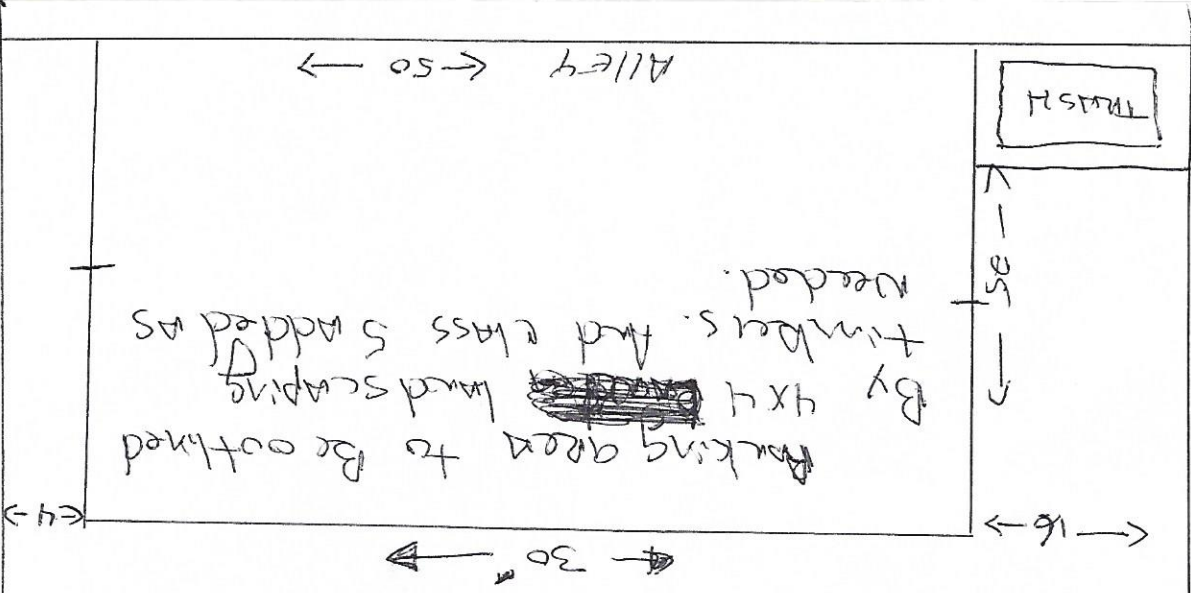 30"
16
4
Parking area to Be outlined
By 4x4 landscaping
timbers. And class 5 added as
Needed.
25
TRASH
Alley 50